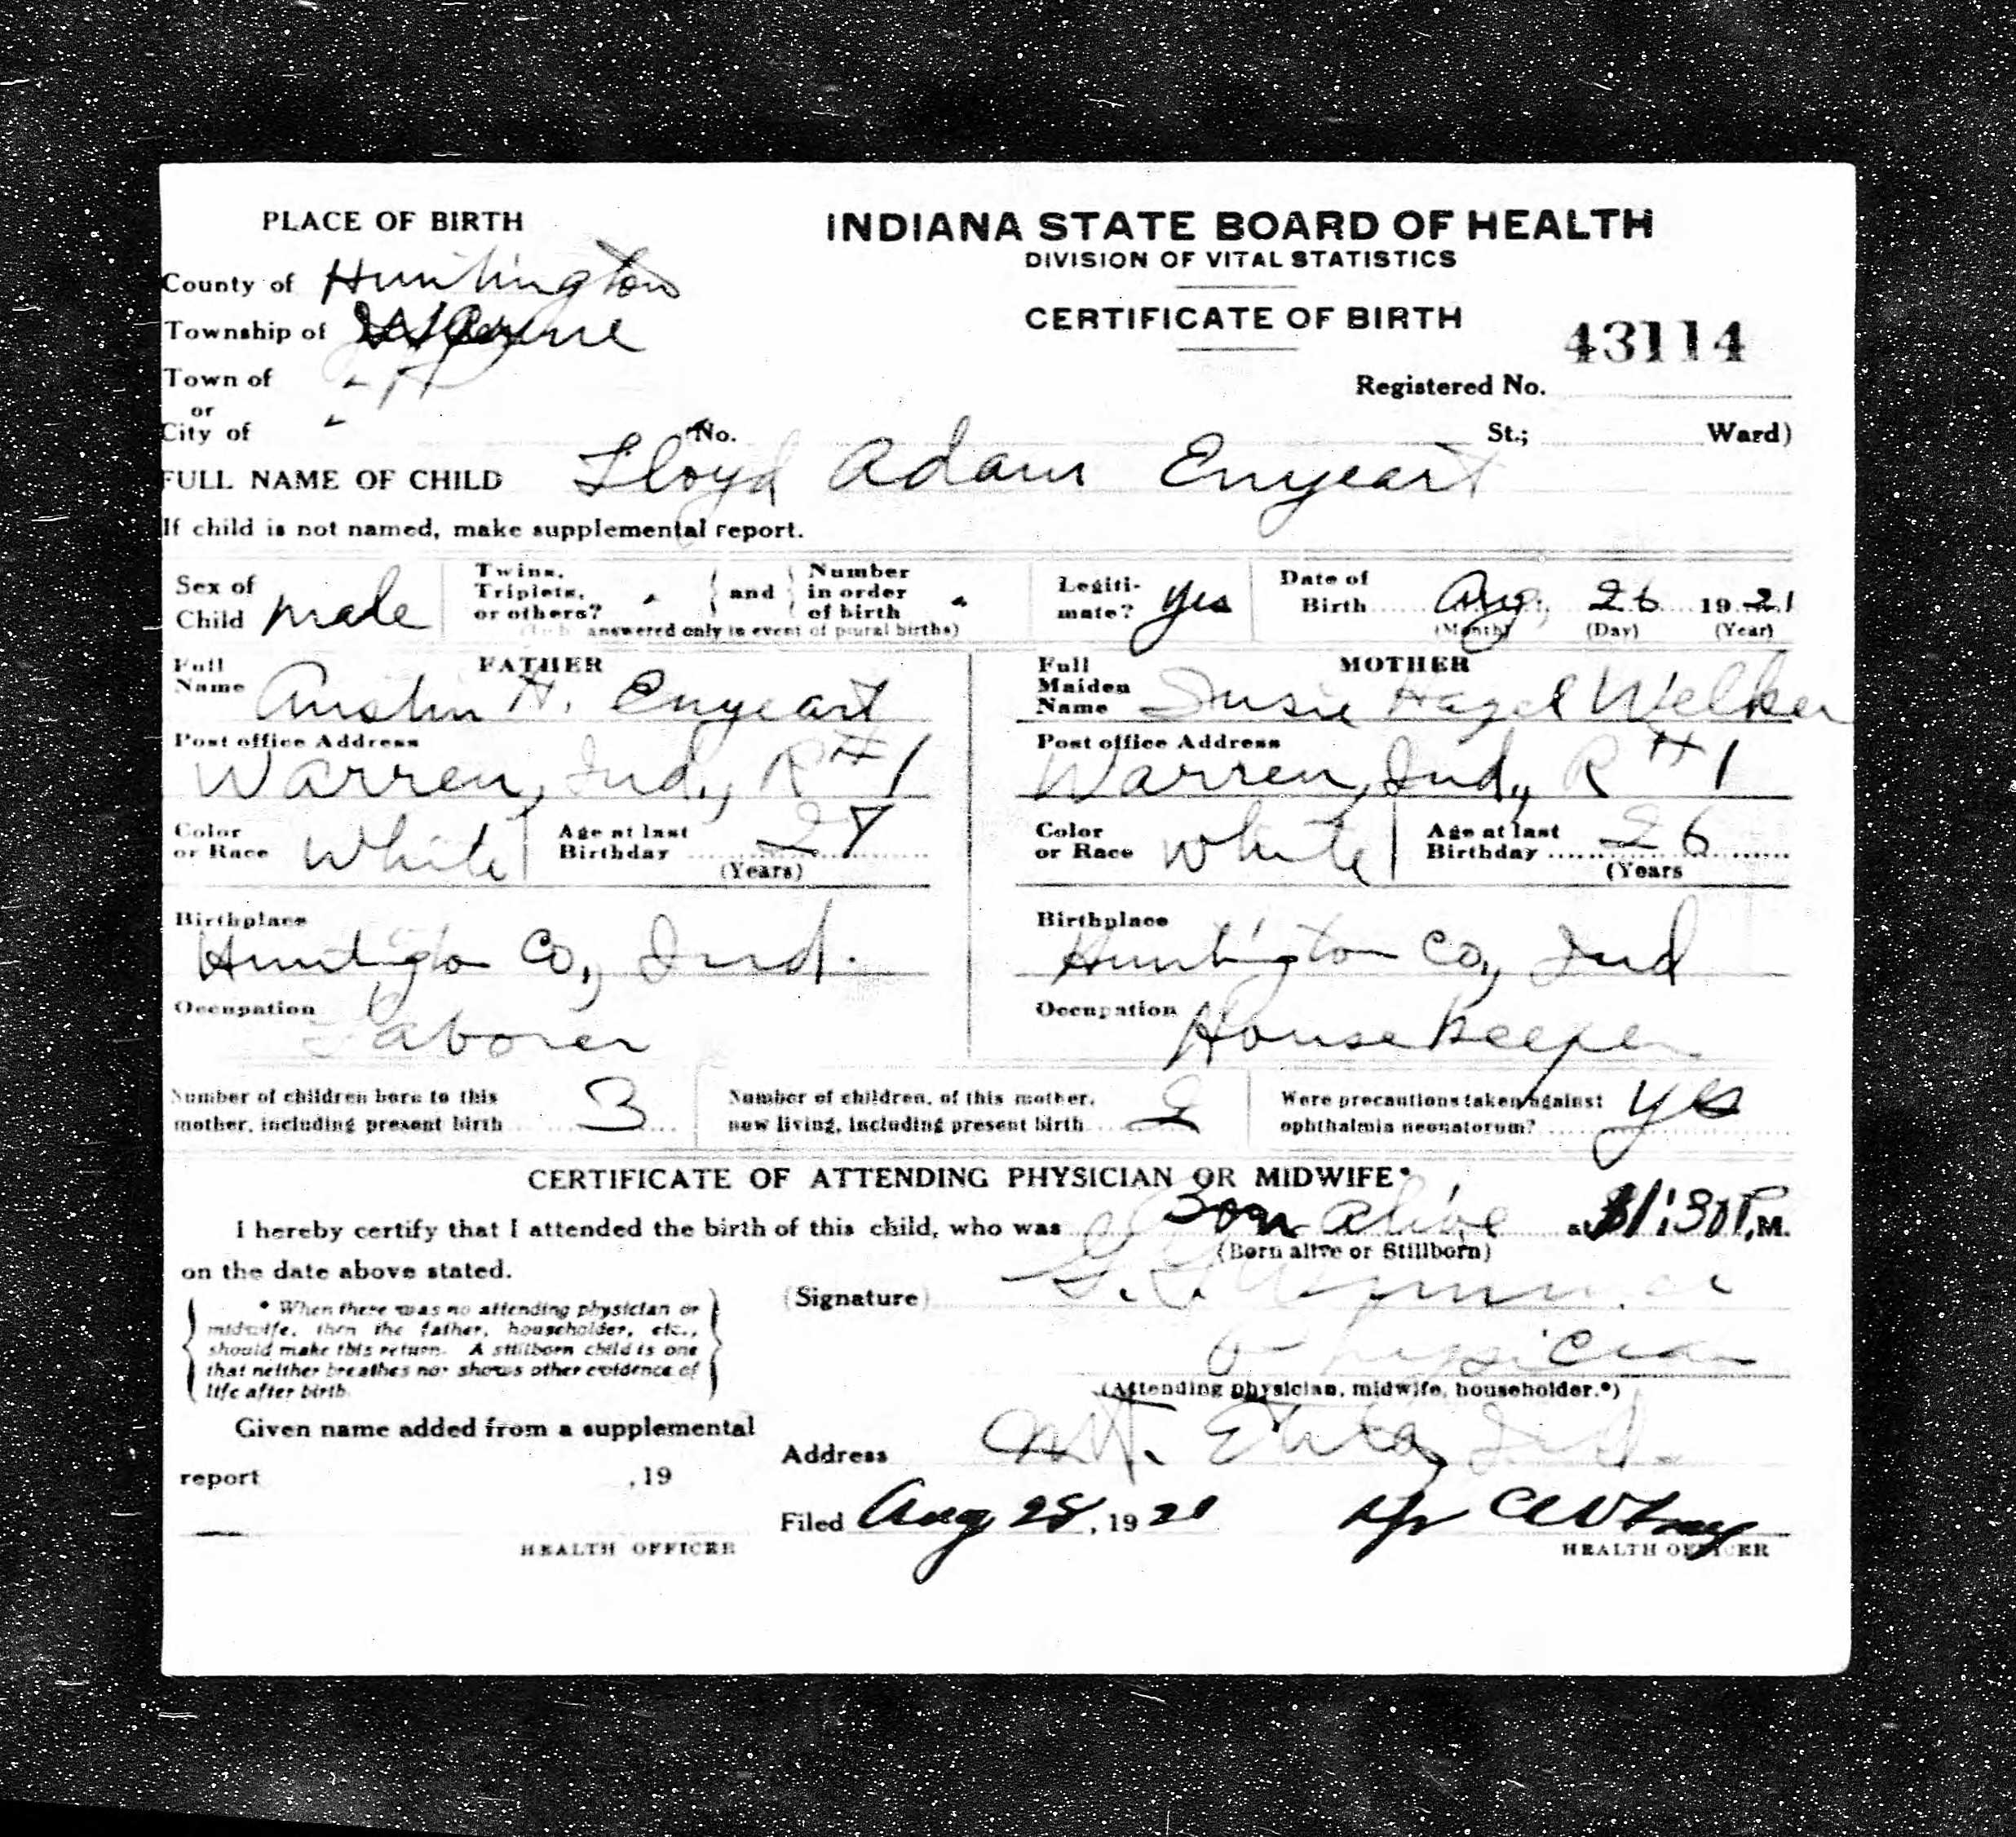 PLACE OF BIRTH
INDIANA STATE BOARD OF HEALTH
DIVISION OF VITAL STATISTICS
CERTIFICATE OF BIRTH
County of Huntington
Township of Wayne
43114
Town of
Registered No.
or
City of
No. St.; Ward)
FULL NAME OF CHILD Lloyd Adam Enyeart
If child is not named, make supplemental report.
Sex of Child male
Twins, Triplets, or others? and Number in order of birth
answered only in event of plural births)
Legiti-mate? yes
Date of Birth Aug. 26 1921
(Month) (Day) (Year)
FATHER
Full Name Austin H. Enyeart
Post office Address
Warren, Ind., R#1
Color or Race White Age at last Birthday 27
(Years)
Birthplace
Huntington Co., Ind.
Occupation
Laborer
MOTHER
Full Maiden Name Susie Hazel Welker
Post office Address
Warren, Ind., R#1
Color or Race White Age at last Birthday 26
(Years
Birthplace
Huntington Co., Ind
Occupation
Housekeeper
Number of children born to this mother, including present birth 3
Number of children, of this mother, now living, including present birth 2
Were precautions taken against ophthalmia neonatorum? yes
CERTIFICATE OF ATTENDING PHYSICIAN OR MIDWIFE*
I hereby certify that I attended the birth of this child, who was Born alive at 11:30 P. M.
(Born alive or Stillborn)
on the date above stated.
(Signature)
Physician
(Attending physician, midwife, householder.*)
* When there was no attending physician or
midwife, then the father, householder, etc.,
should make this return. A stillborn child is one
that neither breathes nor shows other evidence of
life after birth.
Given name added from a supplemental
report , 19
HEALTH OFFICER
Address Mt. Etna, Ind.
Filed Aug 28, 1921
HEALTH OFFICER